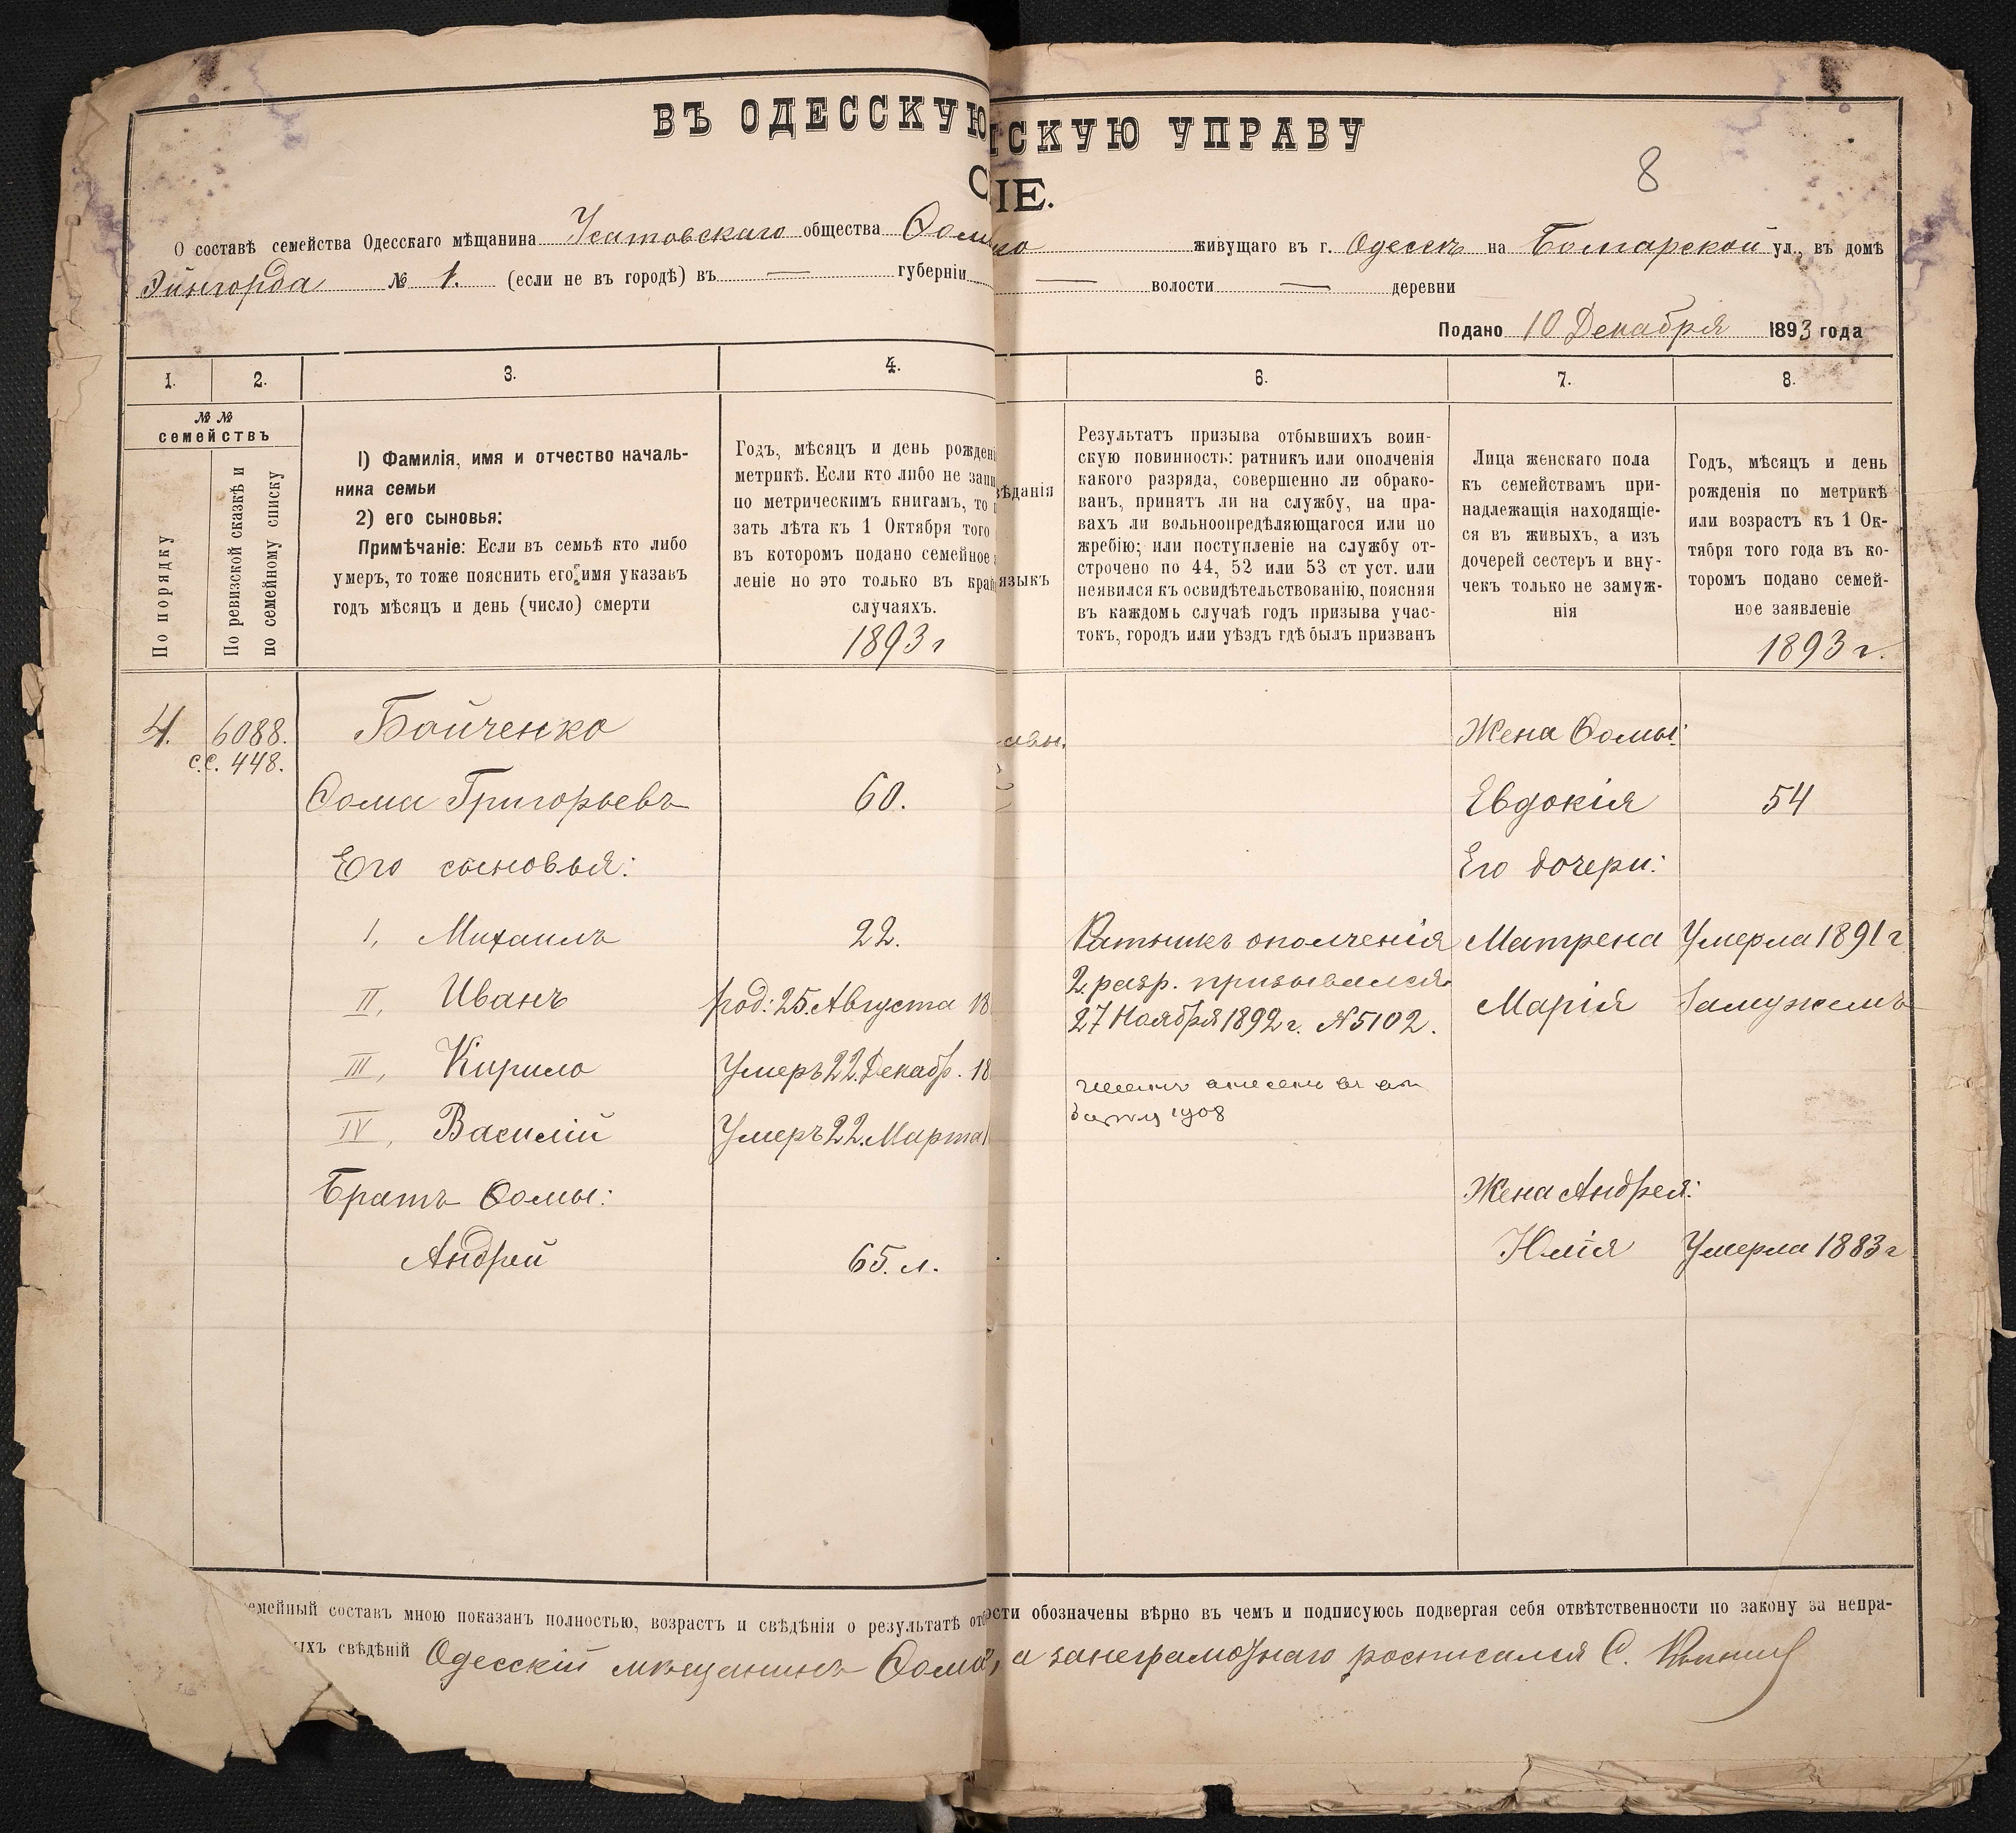 ВЪ ОДЕССКУЮ
СКУЮ УПРАВУ
8
ІЕ.
О составѣ семейства Одесскаго мѣщанина Усатовскаго общества Ѳом
ко живущаго въ г. Одессѣ на Болгарской ул., въ домѣ
Эйнгорда № 1. (если не въ городѣ) въ — губерніи
— волости — деревни
Подано 10 Декабря 1893 года
1. 2. 3. 4.
6. 7. 8.
№ №
семействъ
По порядку
По ревизской сказкѣ и
по семейному списку
1) Фамилія, имя и отчество началь-
ника семьи
2) его сыновья:
Примѣчаніе: Если въ семьѣ кто либо
умеръ, то тоже пояснить его имя указавъ
годъ мѣсяцъ и день (число) смерти
Годъ, мѣсяцъ и день рождені
метрикѣ. Если кто либо не запи
по метрическимъ книгамъ, то п
зать лѣта къ 1 Октября того
въ которомъ подано семейное
леніе но это только въ край
случаяхъ.
1893 г
ѣданія
языкъ
Результатъ призыва отбывшихъ воин-
скую повинность: ратникъ или ополченія
какого разряда, совершенно ли обрако-
ванъ, принятъ ли на службу, на пра-
вахъ ли вольноопредѣляющагося или по
жребію; или поступленіе на службу от-
строчено по 44, 52 или 53 ст уст. или
неявился къ освидѣтельствованію, поясняя
въ каждомъ случаѣ годъ призыва учас-
токъ, городъ или уѣздъ гдѣ былъ призванъ
Лица женскаго пола
къ семействамъ при-
надлежащія находящіе-
ся въ живыхъ, а изъ
дочерей сестеръ и вну-
чекъ только не замуж-
нія
Годъ, мѣсяцъ и день
рожденія по метрикѣ
или возрастъ къ 1 Ок-
тября того года въ ко-
торомъ подано семей-
ное заявленіе
1893 г.
4. 6088. Бойченко
с.с. 448.
Жена Ѳомы:
Ѳома Григорьевъ 60.
Евдокія 54
Его сыновья:
Его дочери:
I, Михаилъ 22.
Ратникъ ополченія
2 разр. призывался
27 Ноября 1892 г. N 5102.
Матрена Умерла 1891 г
II, Иванъ род: 25. Августа 18
Марія Замужемъ
III, Кирило Умеръ 22. Декабр. 18
1908
IV, Василій Умеръ 22. Марта 1
Братъ Ѳомы:
Жена Андрея:
Андрей 65. л.
Юлія Умерла 1883 г
емейный составъ мною показанъ полностью, возрастъ и свѣдѣнія о результатѣ отб
ости обозначены вѣрно въ чемъ и подписуюсь подвергая себя отвѣтственности по закону за непра-
ыхъ свѣдѣній Одесскій мѣщанинъ Ѳома
, а занеграмотнаго росписался С.